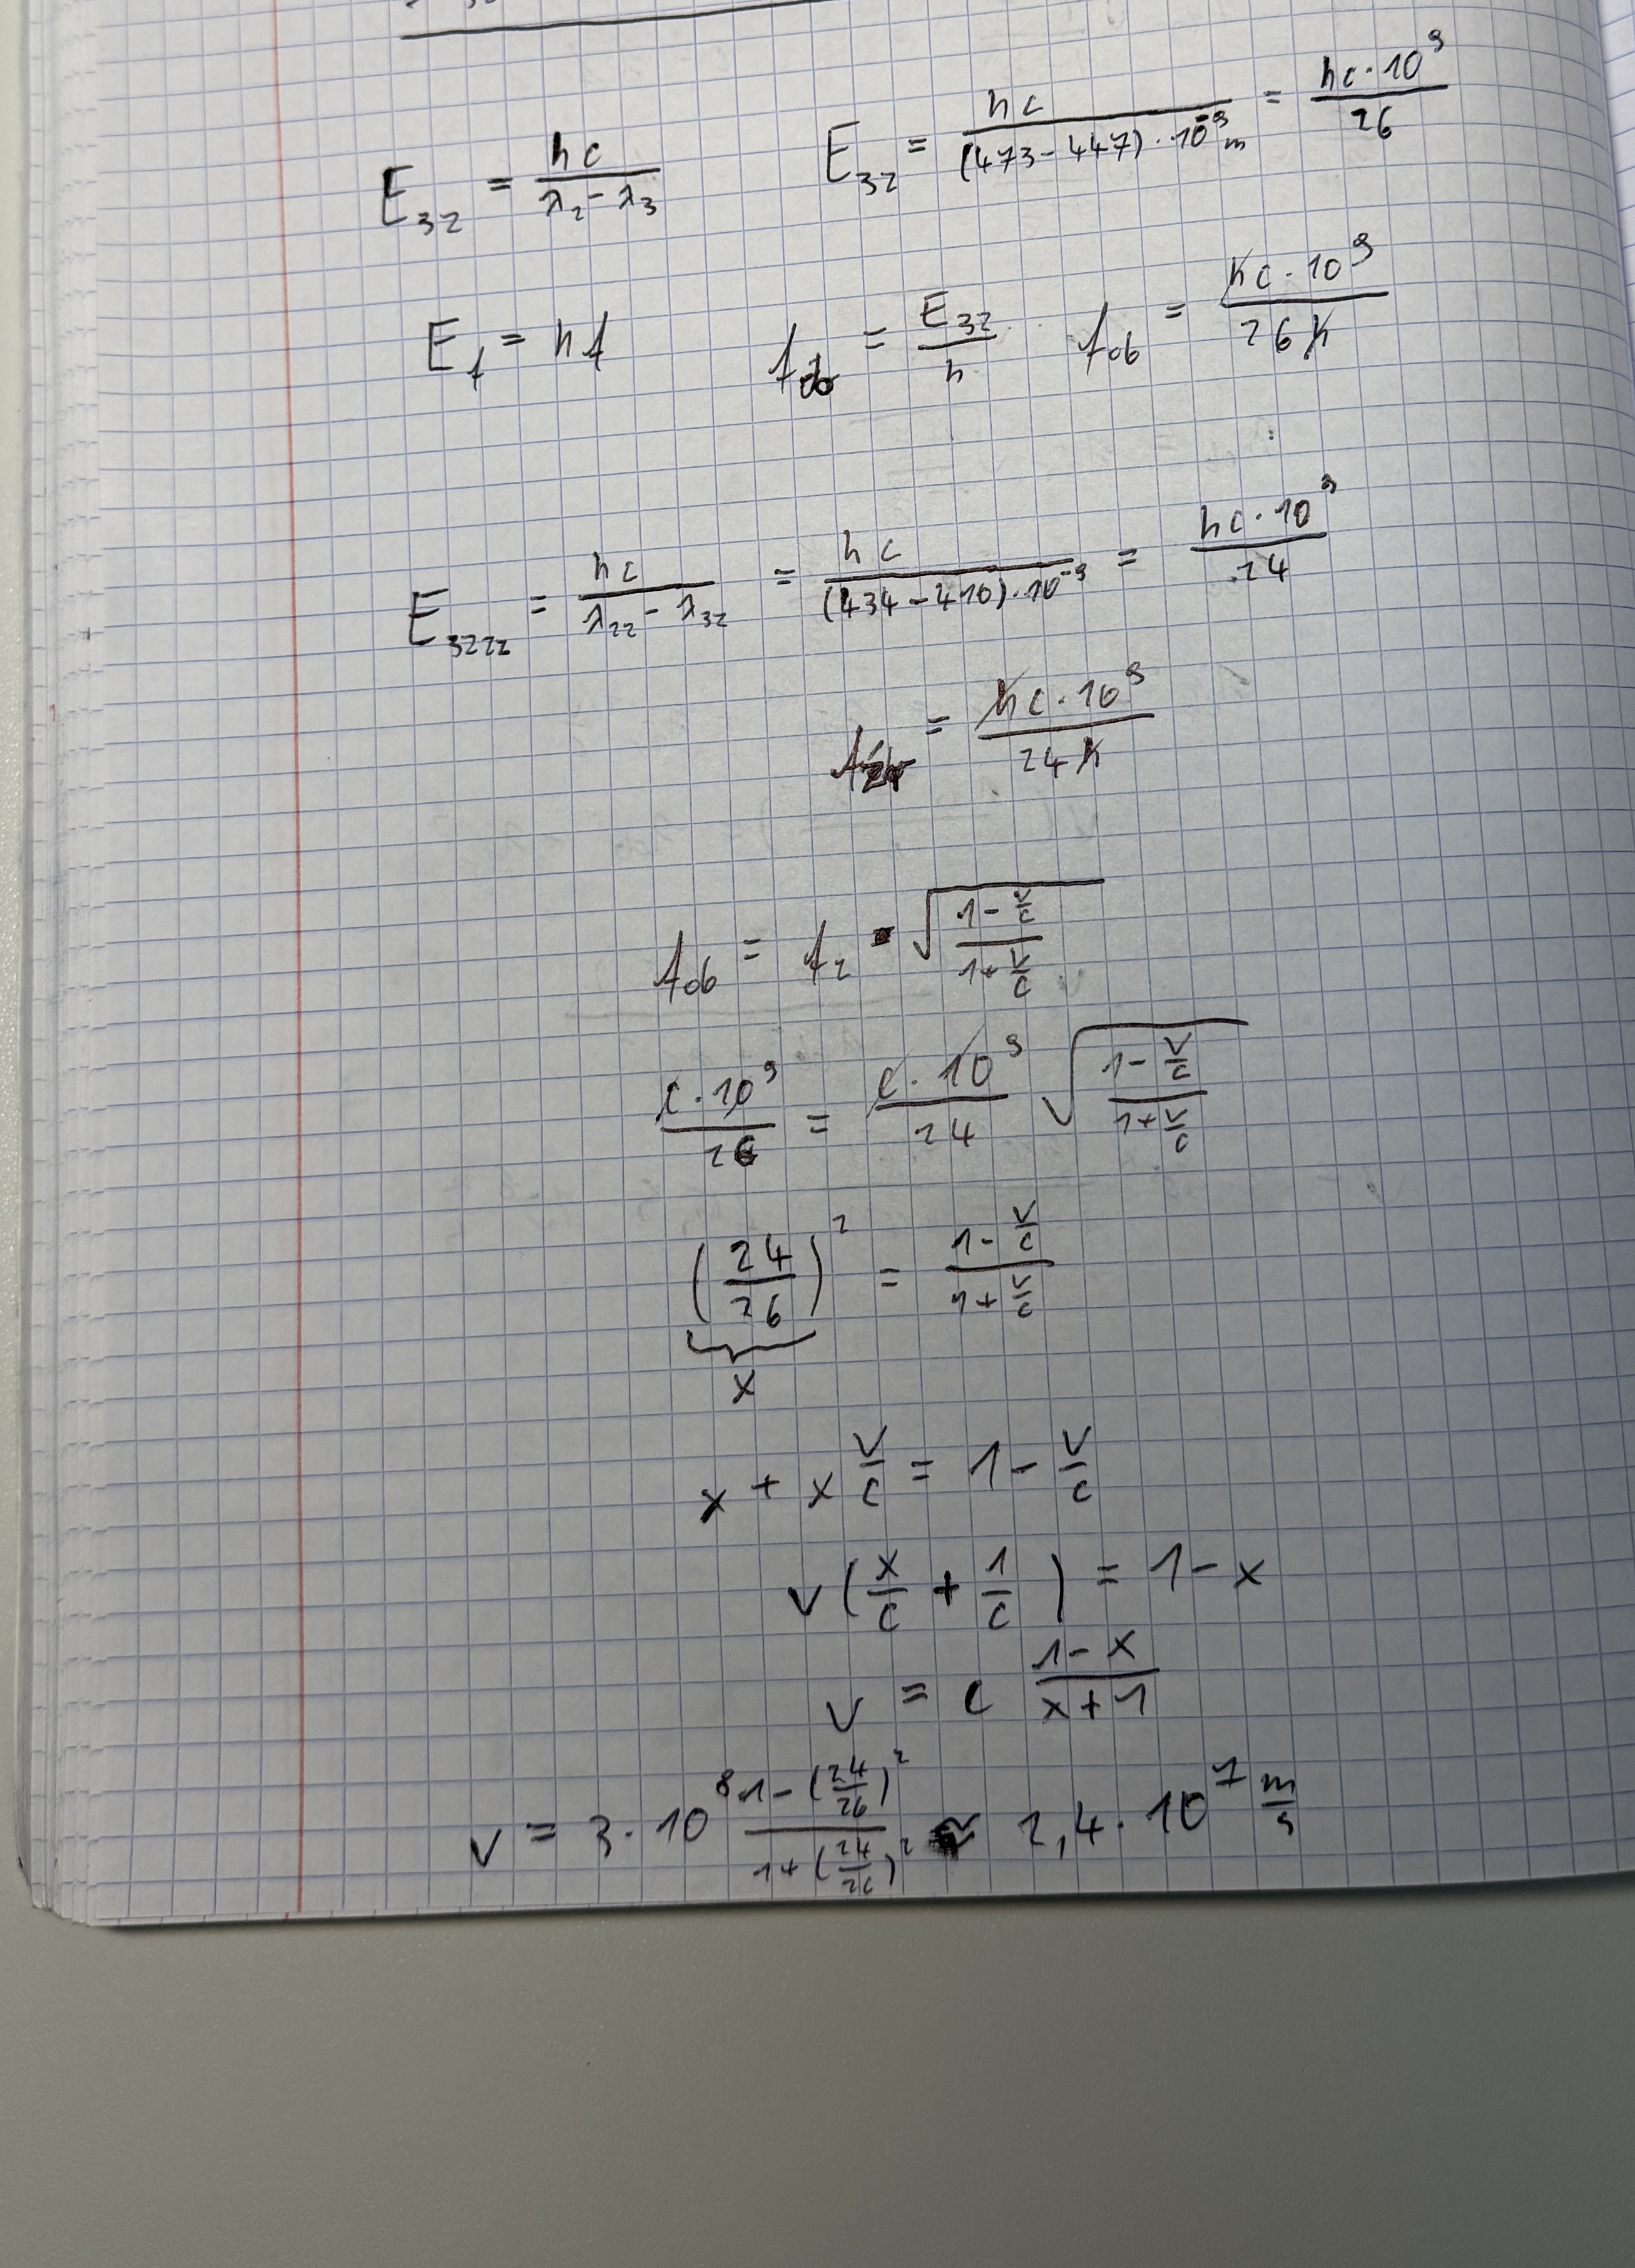 E₃₂ = hc / (λ₂ - λ₃)    E₃₂ = hc / ((473 - 447) · 10⁻⁹ m) = hc · 10⁹ / 26
E_f = hf    f_ob = E₃₂ / h    f_ob = hc · 10⁹ / 26h
E₃₂₂₂ = hc / (λ₂₂ - λ₃₂) = hc / ((434 - 410) · 10⁻⁹) = hc · 10⁹ / 24
f = hc · 10⁹ / 24h
f_ob = f_z · √((1 - v/c) / (1 + v/c))
c · 10⁹ / 26 = c · 10⁹ / 24 √((1 - v/c) / (1 + v/c))
(24/26)² = (1 - v/c) / (1 + v/c)
x
x + x v/c = 1 - v/c
v (x/c + 1/c) = 1 - x
v = c (1 - x) / (x + 1)
v = 3 · 10⁸ · (1 - (24/26)²) / (1 + (24/26)²) ≈ 2,4 · 10⁷ m/s